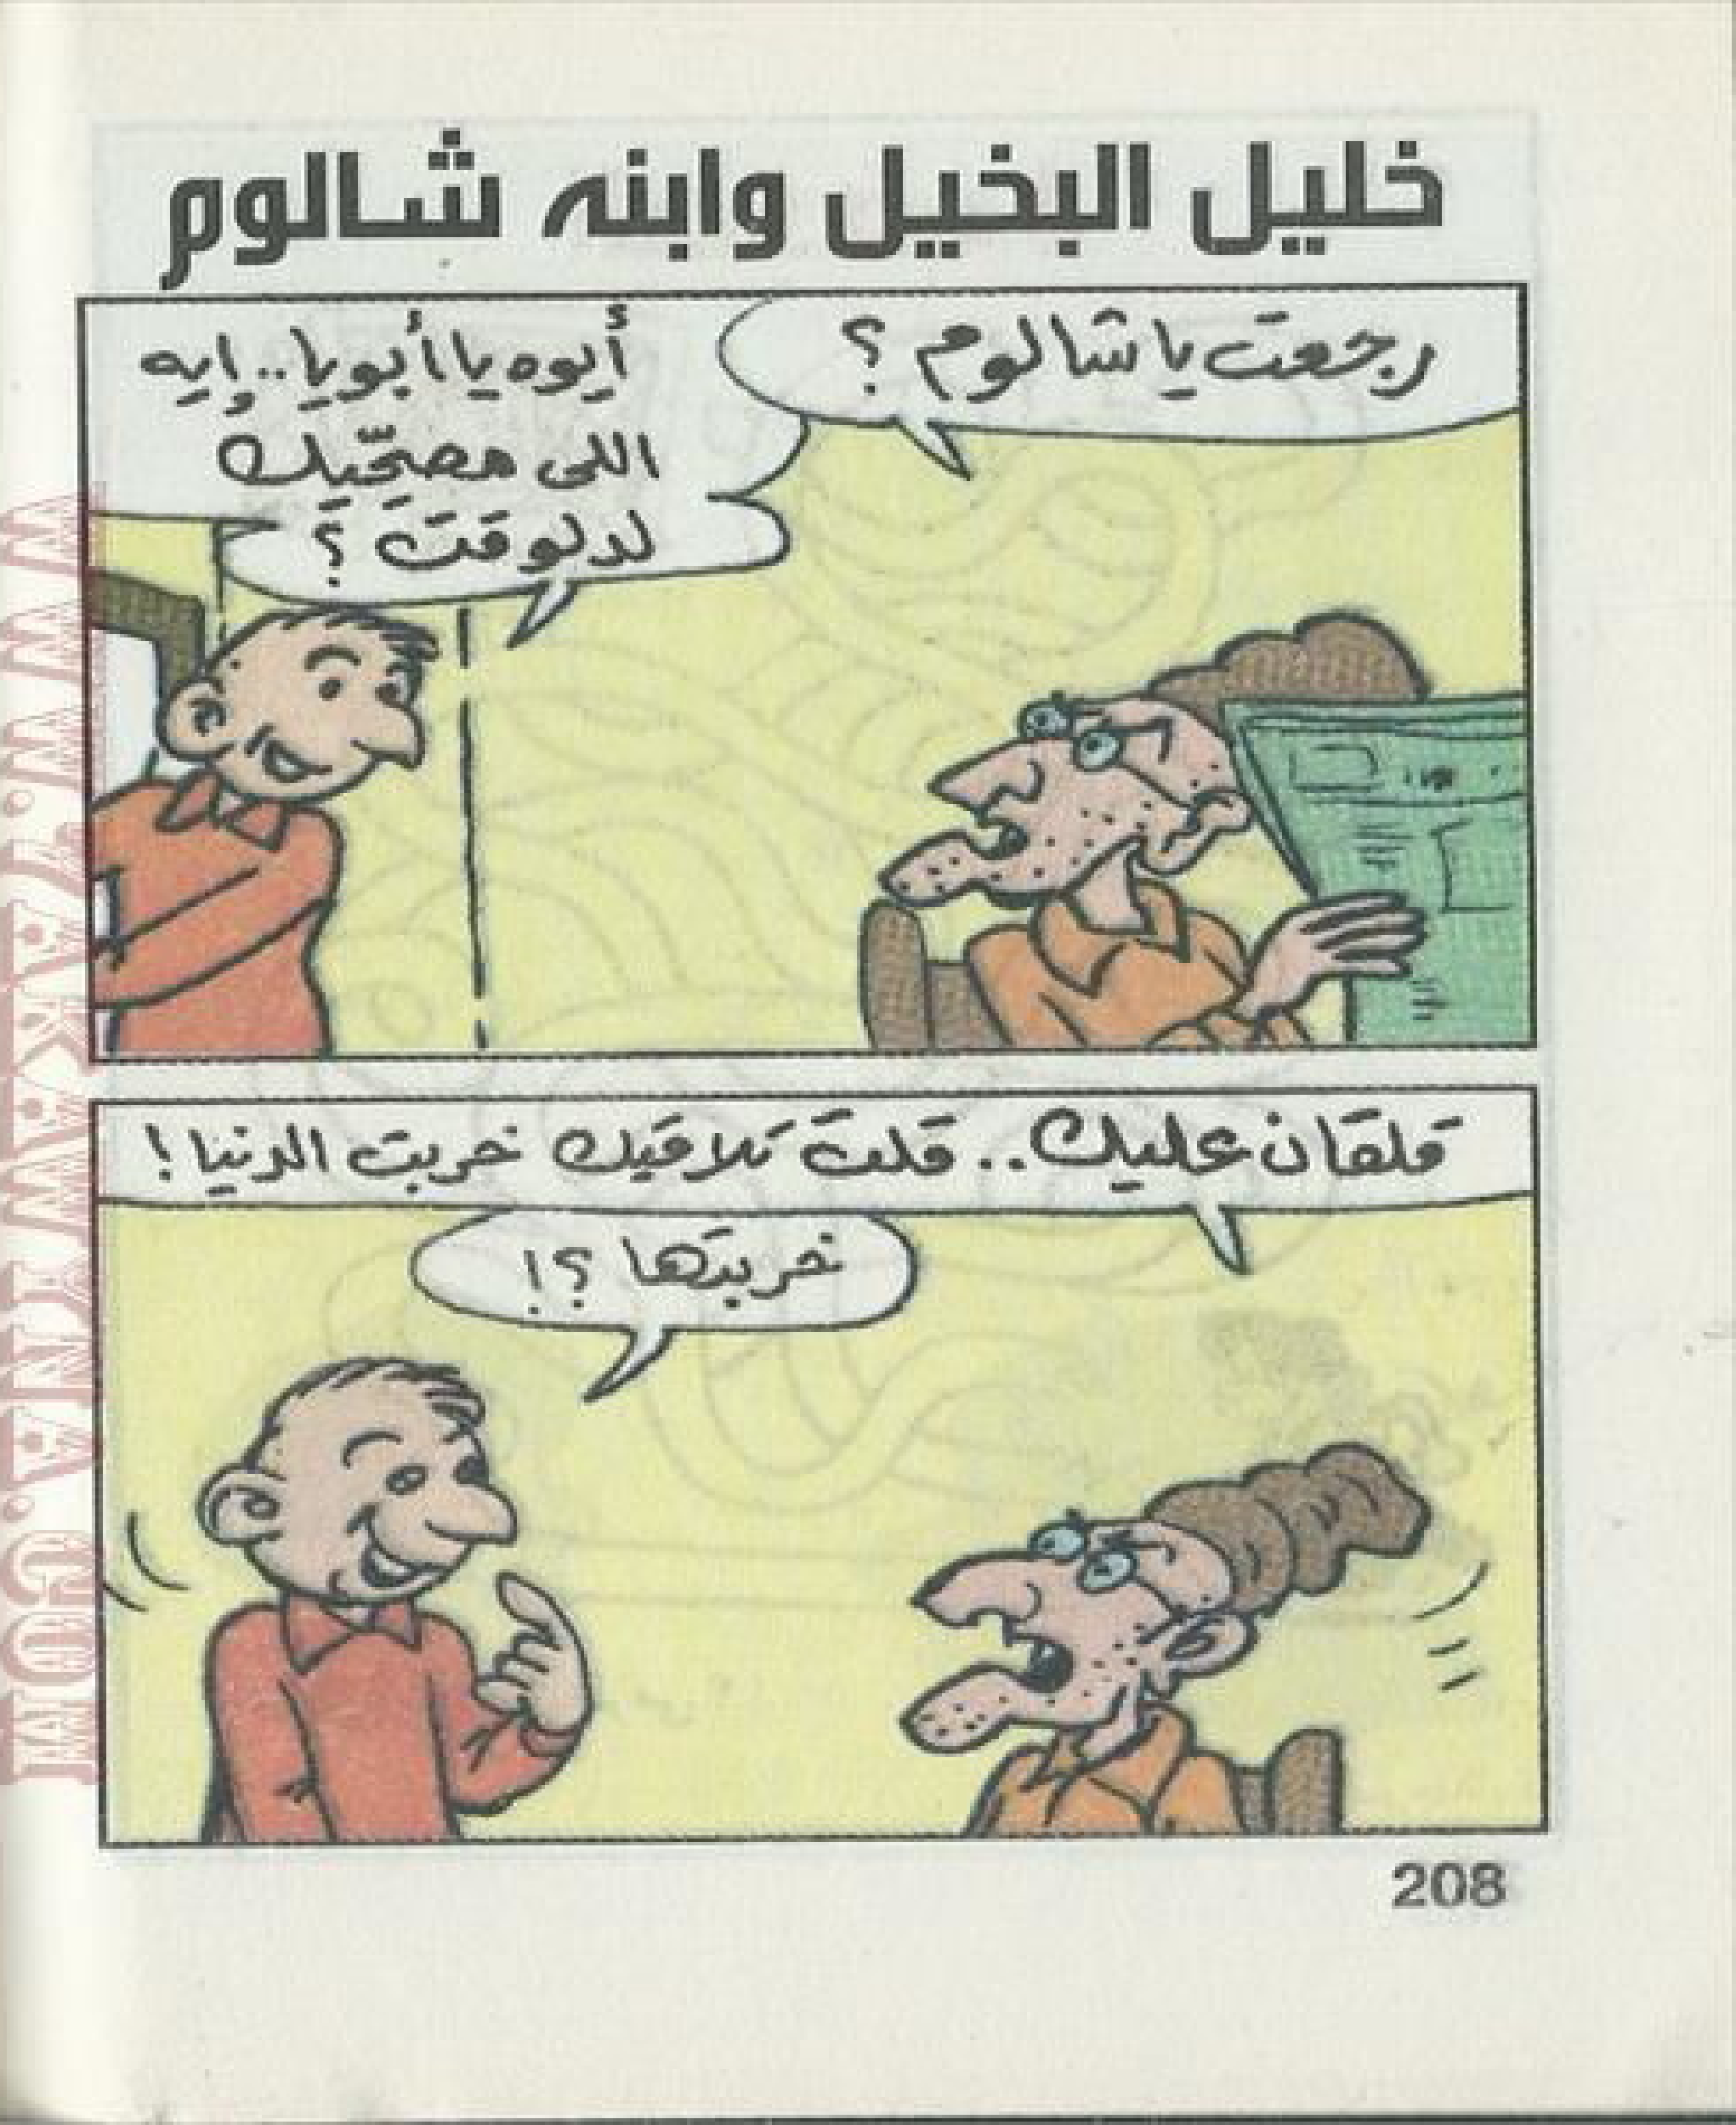 خليل البخيل وابنه شالوم
رجعت يا شالوم ؟
أيوه يا أبويا.. إيه
اللى مصحّيك
لدلوقت ؟
قلقان عليك.. قلت تلاقيك خربت الدنيا !
خربتها ؟!
208
WWW.TAKAWINNA.COM